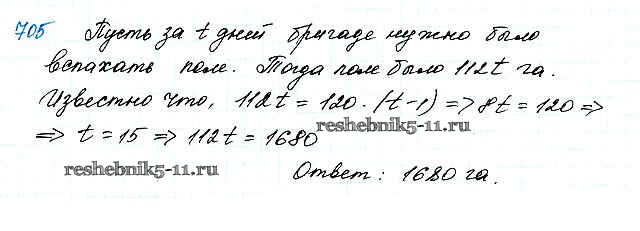 705 Пусть за t дней бригаде нужно было
вспахать поле. Тогда поле было 112t га.
Известно что, 112t = 120·(t-1) => 8t = 120 =>
=> t = 15 => 112t = 1680
reshebnik5-11.ru
reshebnik5-11.ru
Ответ: 1680 га.